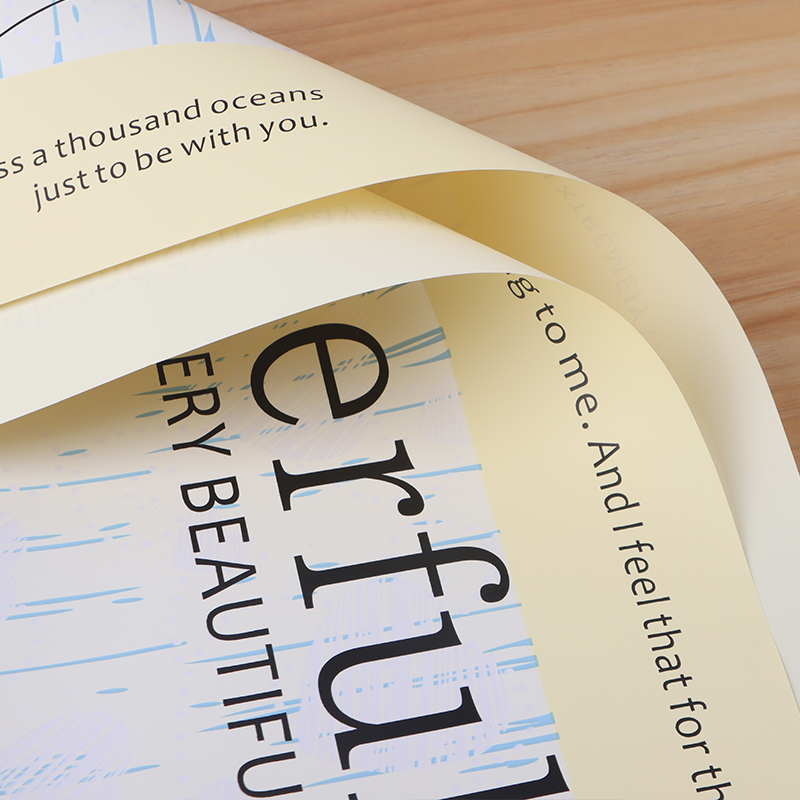 ss a thousand oceans
just to be with you.
g to me. And I feel that for th
erful
ERY BEAUTIFU
EXTREMELY